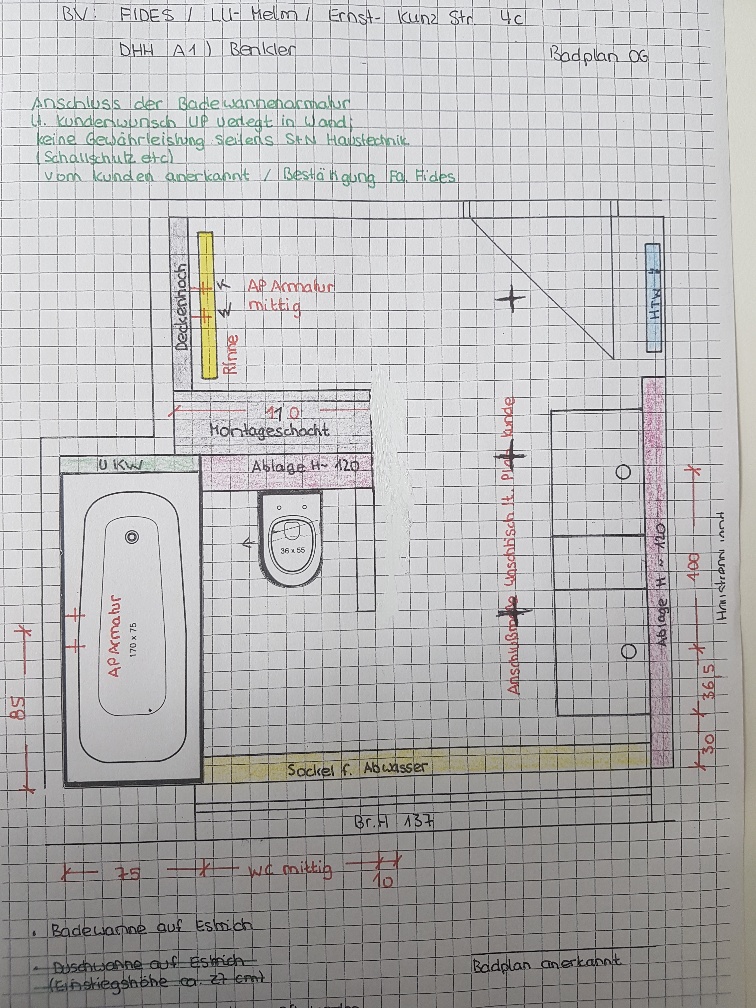 BV: FIDES / LU- Melm / Ernst- Kunz Str. 4c
DHH (A1) Benkler
Badplan OG
Anschluss der Badewannenarmatur
lt. Kundenwunsch UP verlegt in Wand;
keine Gewährleistung seitens S+N Haustechnik
(Schallschutz etc)
vom Kunden anerkannt / Bestätigung Fa. Fides
Deckenhoch
K
W
AP Armatur
mittig
Rinne
HTW
110
Montageschacht
UKW
Ablage H~ 120
36 x 55
AP Armatur
170 x 75
85
Waschtisch lt. Plan Kunde
Ablage H ~ 120
100
36,5
30
Haustrennwand
Sockel f. Abwasser
Br.H 137
75
WC mittig
10
• Badewanne auf Estrich
• Duschwanne auf Estrich
(Einstiegshöhe ca. 27 cm)
Badplan anerkannt